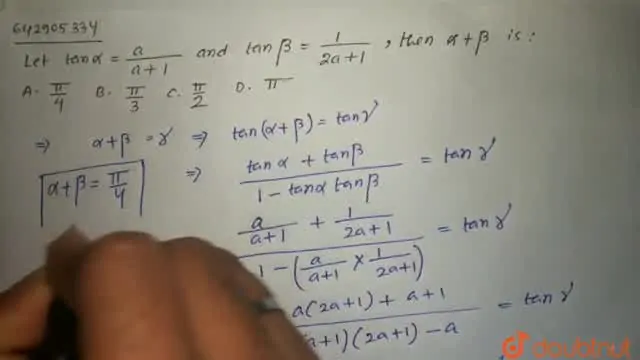 642905334
Let tanα = a/(a+1) and tanβ = 1/(2a+1), then α+β is:
A. π/4 B. π/3 C. π/2 D. π
⇒ α+β = γ ⇒ tan(α+β) = tanγ
⇒ (tanα + tanβ)/(1 - tanα tanβ) = tanγ
α+β = π/4
(a/(a+1) + 1/(2a+1))/(1 - (a/(a+1) × 1/(2a+1))) = tanγ
a(2a+1) + a+1 = tanγ
a+1)(2a+1) - a
doubtnut